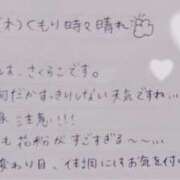 (木)くもり時々晴れ
は、さくらこです。
何だかすっきりしない天気ですね…
注意!!!
も花粉がすごすぎる〜〜…
変わり目、体調にはお気を付